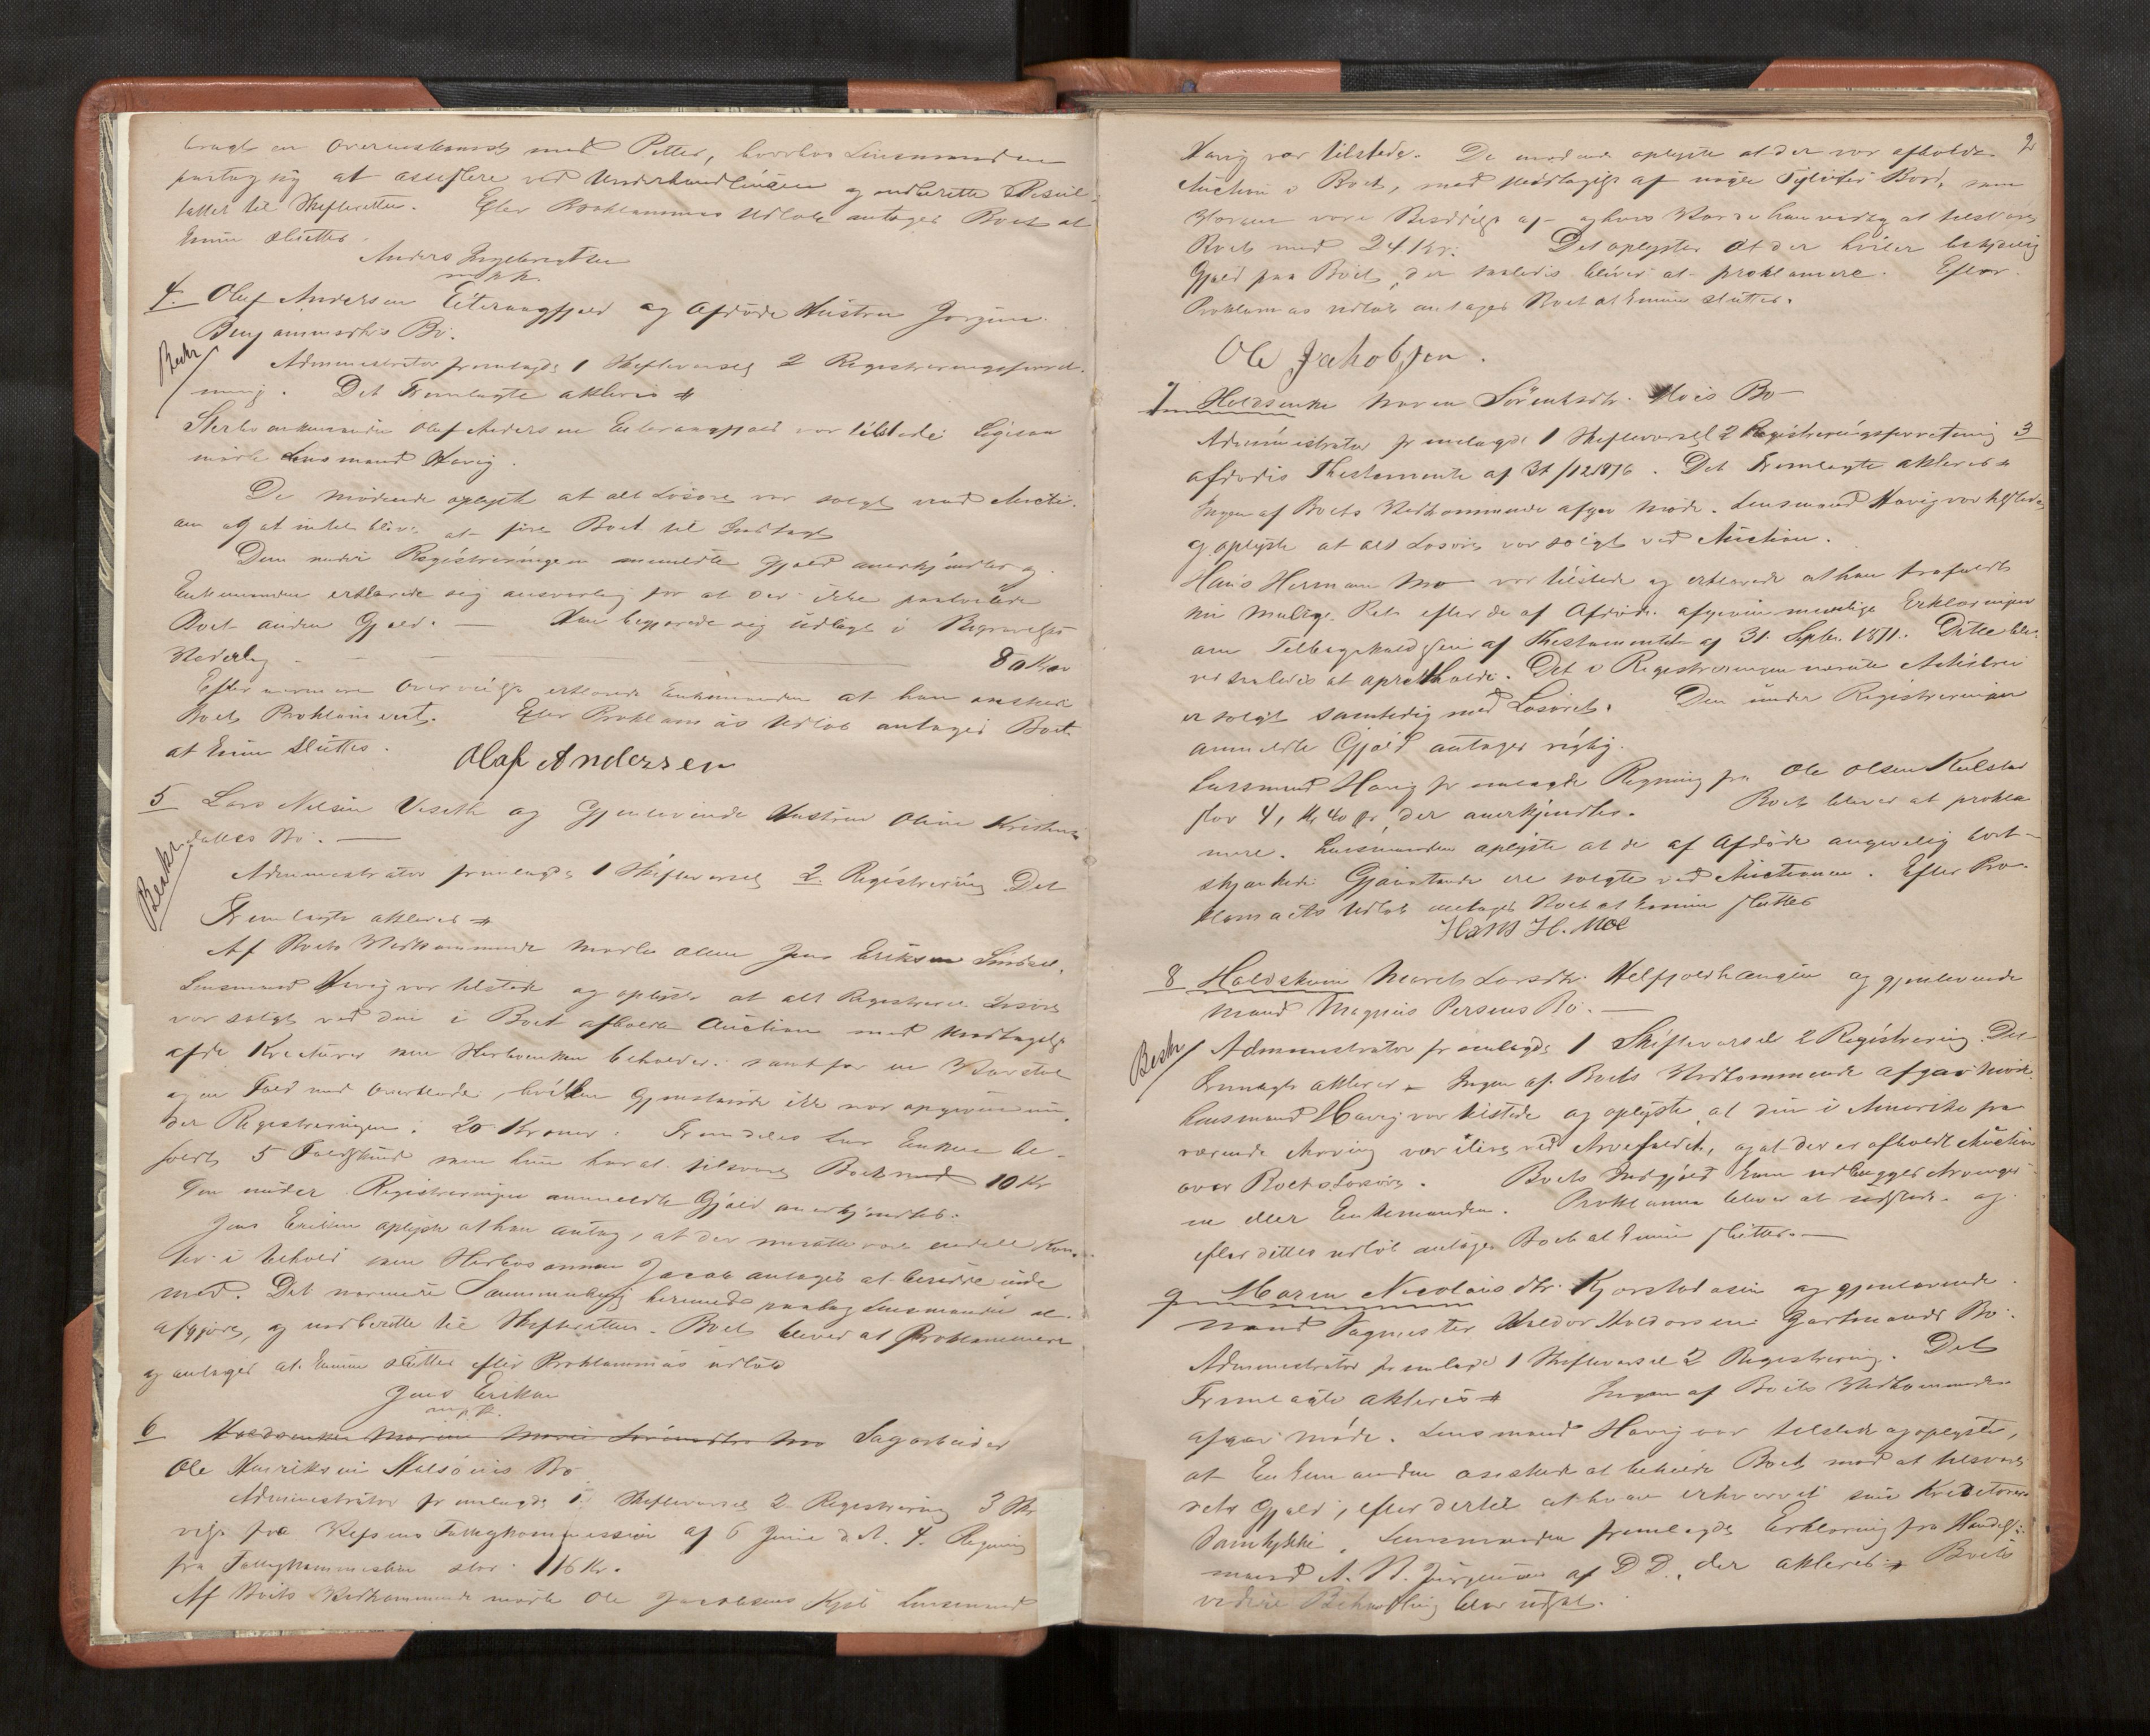 bragt en Overenskomst med Petter, hvorhos Lensmanden
paatog sig at assistere ved Underhandlingen og indberette Resul-
tattet til Skifteretten. Efter Proklammas Udløb antages Boet at
kunne sluttes.
Anders Ingebrigtsen
m p p.
4. Oluf Andersen Eiteraagfjeld og afdøde Hustru Jørgine
Benjaminsdtrs Bo.
Beskr
Administrator fremlagde 1 Skiftevarsel 2 Registreringsforret-
ning. Det Fremlagte akteres
Olaf Andersen Eiteraagfjeld var tilstede. Ligesaa
mødte Lensmand Havig.
De mødende oplyste at alt Løsøre var solgt ved Aucti-
on og at intet blev at føre Boet til Indtægt
Den under Registreringen anmeldte Gjæld anerkjendtes og
Enkemanden erklærede sig ansvarlig for at der ikke paahvilede
Boet anden Gjæld. — Han begjærede sig udlagt i Begravelses
Vederlag 80 Kro
Efter nærmere Overveielse erklærede Enkemanden at han ønskede
Boet Proklameret. Efter Proklamas Udløb antages Boet
at kunne sluttes.
Olaf Andersen
5 Lars Nilsen Veseth og Gjenlevende Hustrue Oline Kristens
datters Bo. —
Beskr.
Administrator fremlagde 1 Skiftevarsel 2. Registrering Det
Fremlagte akteres
Af Boets Vedkommende mødte alene Jens Eriksen
Lensmand Havig var tilstede og oplyste at alt Registreret Løsøre
var solgt ved den i Boet afholdte Auction med Undtagelse
af de Kreaturer som Sterboenken beholder samt for en Vævstol
og en Fæld med Overbrede, hvilke Gjenstande ikke var opgivne un-
der Registreringen: 20 Kroner. Fremdeles har Enken be-
holdt 5 som hun har at tilsvare Boet med 10 Kr
Den under Registreringen anmeldte Gjæld anerkjendtes.
Jens Eriksen oplyste at han antog, at der maatte være endel
ter i behold som Sterbosønnen Jacob antages at beside inde
med. Det nærmere Sammenhæng hermed paatog Lensmanden at
afgjøre, og indberette til Skifteretten. Boet bliver at Proklammere
og antages at kunne sluttes efter Proklammas udløb
Jens Eriksen
m. p. p.
6 Sagarbeider
Ole Henriksen Halsøens Bo
Administrator fremlagde 1. Skiftevarsel 2 Registrering 3 Skr
velse fra Vefsens Fattigkommission af 6 Juni d. A. 4. Regning
fra Fattigkommission stor 116 Kr.
Af Boets Vedkommende mødte Ole Jacobsen Lensmand
2
Havig var tilstede. De mødende oplyste at der var afholdt
Auction i Boet, med Undtagelse af nogle Bord, som
var i Besiddelse af og hvis Værdi han vedtog at tilsvare
Boet med 24 Kr. Det oplystes at der hviler betydelig
Gjæld paa Boet, der saaledes bliver at proklamere. Efter
Proklamas udløb antages Boet at kunne sluttes.
Ole Jakobsen.
7 Huldsenke Maren Sørensdtr. Moes Bo
Administrator fremlagde 1 Skiftevarsel 2 Registreringsforretning 3
afdødes Thestamente af 31/12 1876. Det Fremlagte akteres
Ingen af Boets Vedkommende afgav Møde. Lensmand Havig var tilstede
og oplyste at alt Løsøre var solgt ved Auction.
Hans Herman Mo var tilstede og erklærede at han frafaldt
sin mulige Ret efter de af Afdøde afgivne mundlige Erklæringer
om Tilbagekaldelsen af Thestamentet af 31. Septbr. 1871. Dette blev
saaledes at opretholde. Det i Registreringen nævnte
er solgt samtidig med Løsøret. Den under Registreringen
anmeldte Gjæld antages rigtig.
Lensmand Havig fremlagde Regning fra Ole Olsen Kulstad
stor 4, Kr 40 Ør, der anerkjendtes. Boet bliver at prokla
mere. Lensmanden oplyste at de af Afdøde angivelig bort-
skjænkede Gjenstande ere solgte ved Auctionen. Efter Pro-
klamaets Udløb antages Boet at kunne sluttes
Hans H. Moe
8 Holdskone Mareth Larsdtr. og gjenlevende
Mand Magnus Persens Bo. —
Beskr
Administrator fremlagde 1 Skiftevarsel 2 Registrering. Det
Fremlagte akteres Ingen af Boets Vedkommende afgav Møde.
Lensmand Havig var tilstede og oplyste at den i Amerika fra
værende Arving var ilive ved Arvefaldet, og at der er afholdt Auction
over Boets Løsøre. Boets Indgjæld kun udlægges Arvinger-
ne eller Enkemanden. Proklamma bliver at udstede og
efter dettes udløb antages Boet at kunne sluttes. —
9 Maren Nicolaisdtr. Kjærstadaasen og gjenlevende
Mand Sagmester Haldor Haldorsen Gartmands Bo.
Administrator fremlagde 1 Skiftevarsel 2 Registrering. Det
Fremlagte akteres Ingen af Boets Vedkommende
afgav Møde. Lensmand Havig var tilstede og oplyste,
at Enkemanden ønskede at beholde Boet mod at tilsvare
dets Gjæld, efter dertil at have erhvervet sine Kreditorers
Samtykke. Lensmanden fremlagde Erklæring fra Handels-
mand A. N. Jürgensen af D. D., der akteres Boets
videre Behandling blev udsat.